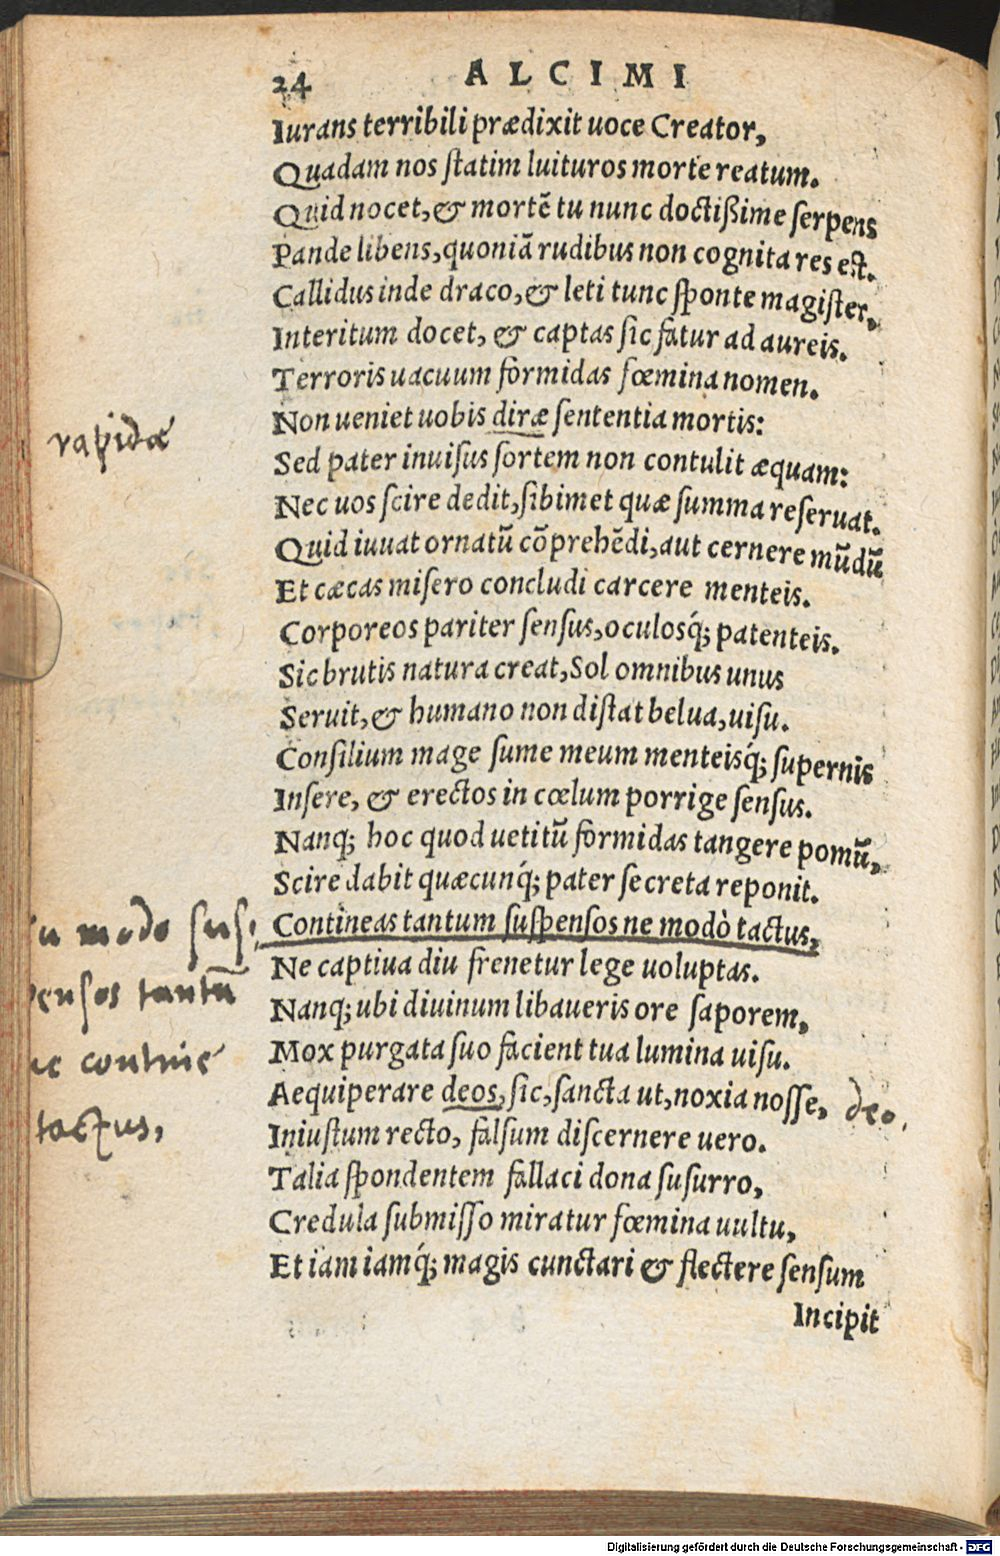 24 ALCIMI
Iurans terribili prædixit uoce Creator,
Quadam nos ſtatim luituros morte reatum.
Quid nocet, & mortē tu nunc doctißime ſerpens
Pande libens, quoniā rudibus non cognita res eſt.
Callidus inde draco, & leti tunc ſponte magiſter,
Interitum docet, & captas ſic fatur ad aureis.
Terroris uacuum formidas fœmina nomen.
Non ueniet uobis diræ ſententia mortis:
rapidæ
Sed pater inuiſus ſortem non contulit æquam:
Nec uos ſcire dedit, ſibimet quæ ſumma reſeruat.
Quid iuuat ornatū cōprehēdi, aut cernere mūdū
Et cæcas miſero concludi carcere menteis.
Corporeos pariter ſenſus, oculosq́; patenteis.
Sic brutis natura creat, Sol omnibus unus
Seruit, & humano non diſtat belua, uiſu.
Conſilium mage ſume meum menteisq́; ſupernis
Inſere, & erectos in cœlum porrige ſenſus.
Nanq; hoc quod uetitū formidas tangere pomū,
Scire dabit quæcunq́; pater ſecreta reponit.
Contineas tantum ſuſpenſos ne modò tactus,
modo ſuſ
penſos tantū
contine
tactus,
Ne captiua diu frenetur lege uoluptas.
Nanq; ubi diuinum libaueris ore ſaporem,
Mox purgata ſuo facient tua lumina uiſu.
Aequiperare deos, ſic, ſancta ut, noxia noſſe,
deo,
Iniuſtum recto, falſum diſcernere uero.
Talia ſpondentem fallaci dona ſuſurro,
Credula ſubmiſſo miratur fœmina uultu,
Et iam iamq́; magis cunctari & flectere ſenſum
Incipit
Digitalisierung gefördert durch die Deutsche Forschungsgemeinschaft - DFG